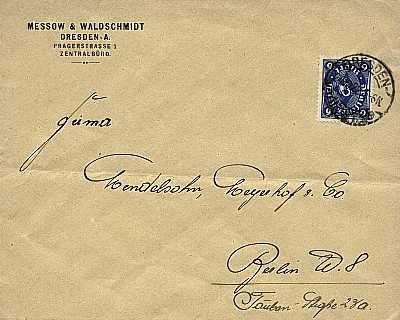 MESSOW & WALDSCHMIDT
DRESDEN-A.
PRAGERSTRASSE 1
ZENTRALBÜRO.
DRESDEN-
Firma
Mendelsohn, Meyerhof & Co
Berlin W. 8
Tauben-Straße 23a.